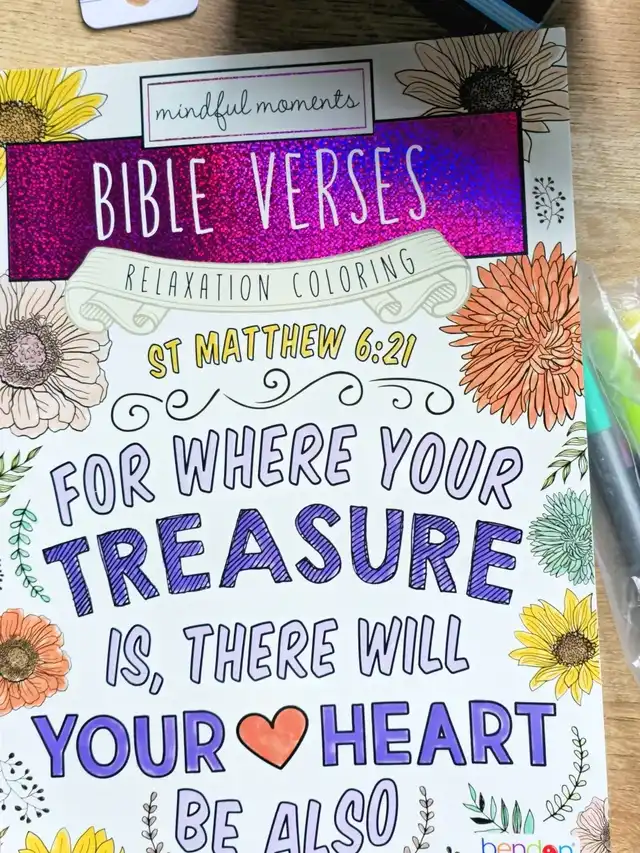 mindful moments
BIBLE VERSES
RELAXATION COLORING
ST MATTHEW 6:21
FOR WHERE YOUR
TREASURE
IS, THERE WILL
YOUR HEART
BE ALSO
bendon